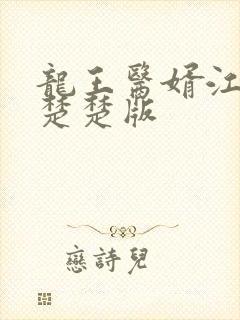 龍王醫婿江
楚楚版
戀詩兒